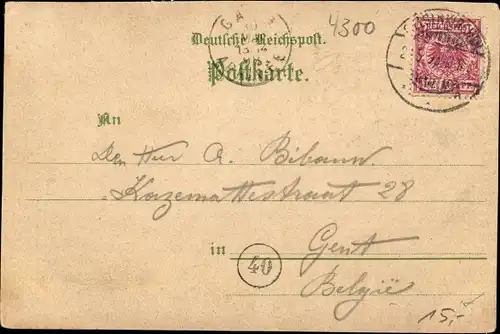 4300
Deutsche Reichspost.
Postkarte.
An
Den Heer A. Bibauw.
Kazemattestraat 28
in Gent
40
België
15,-